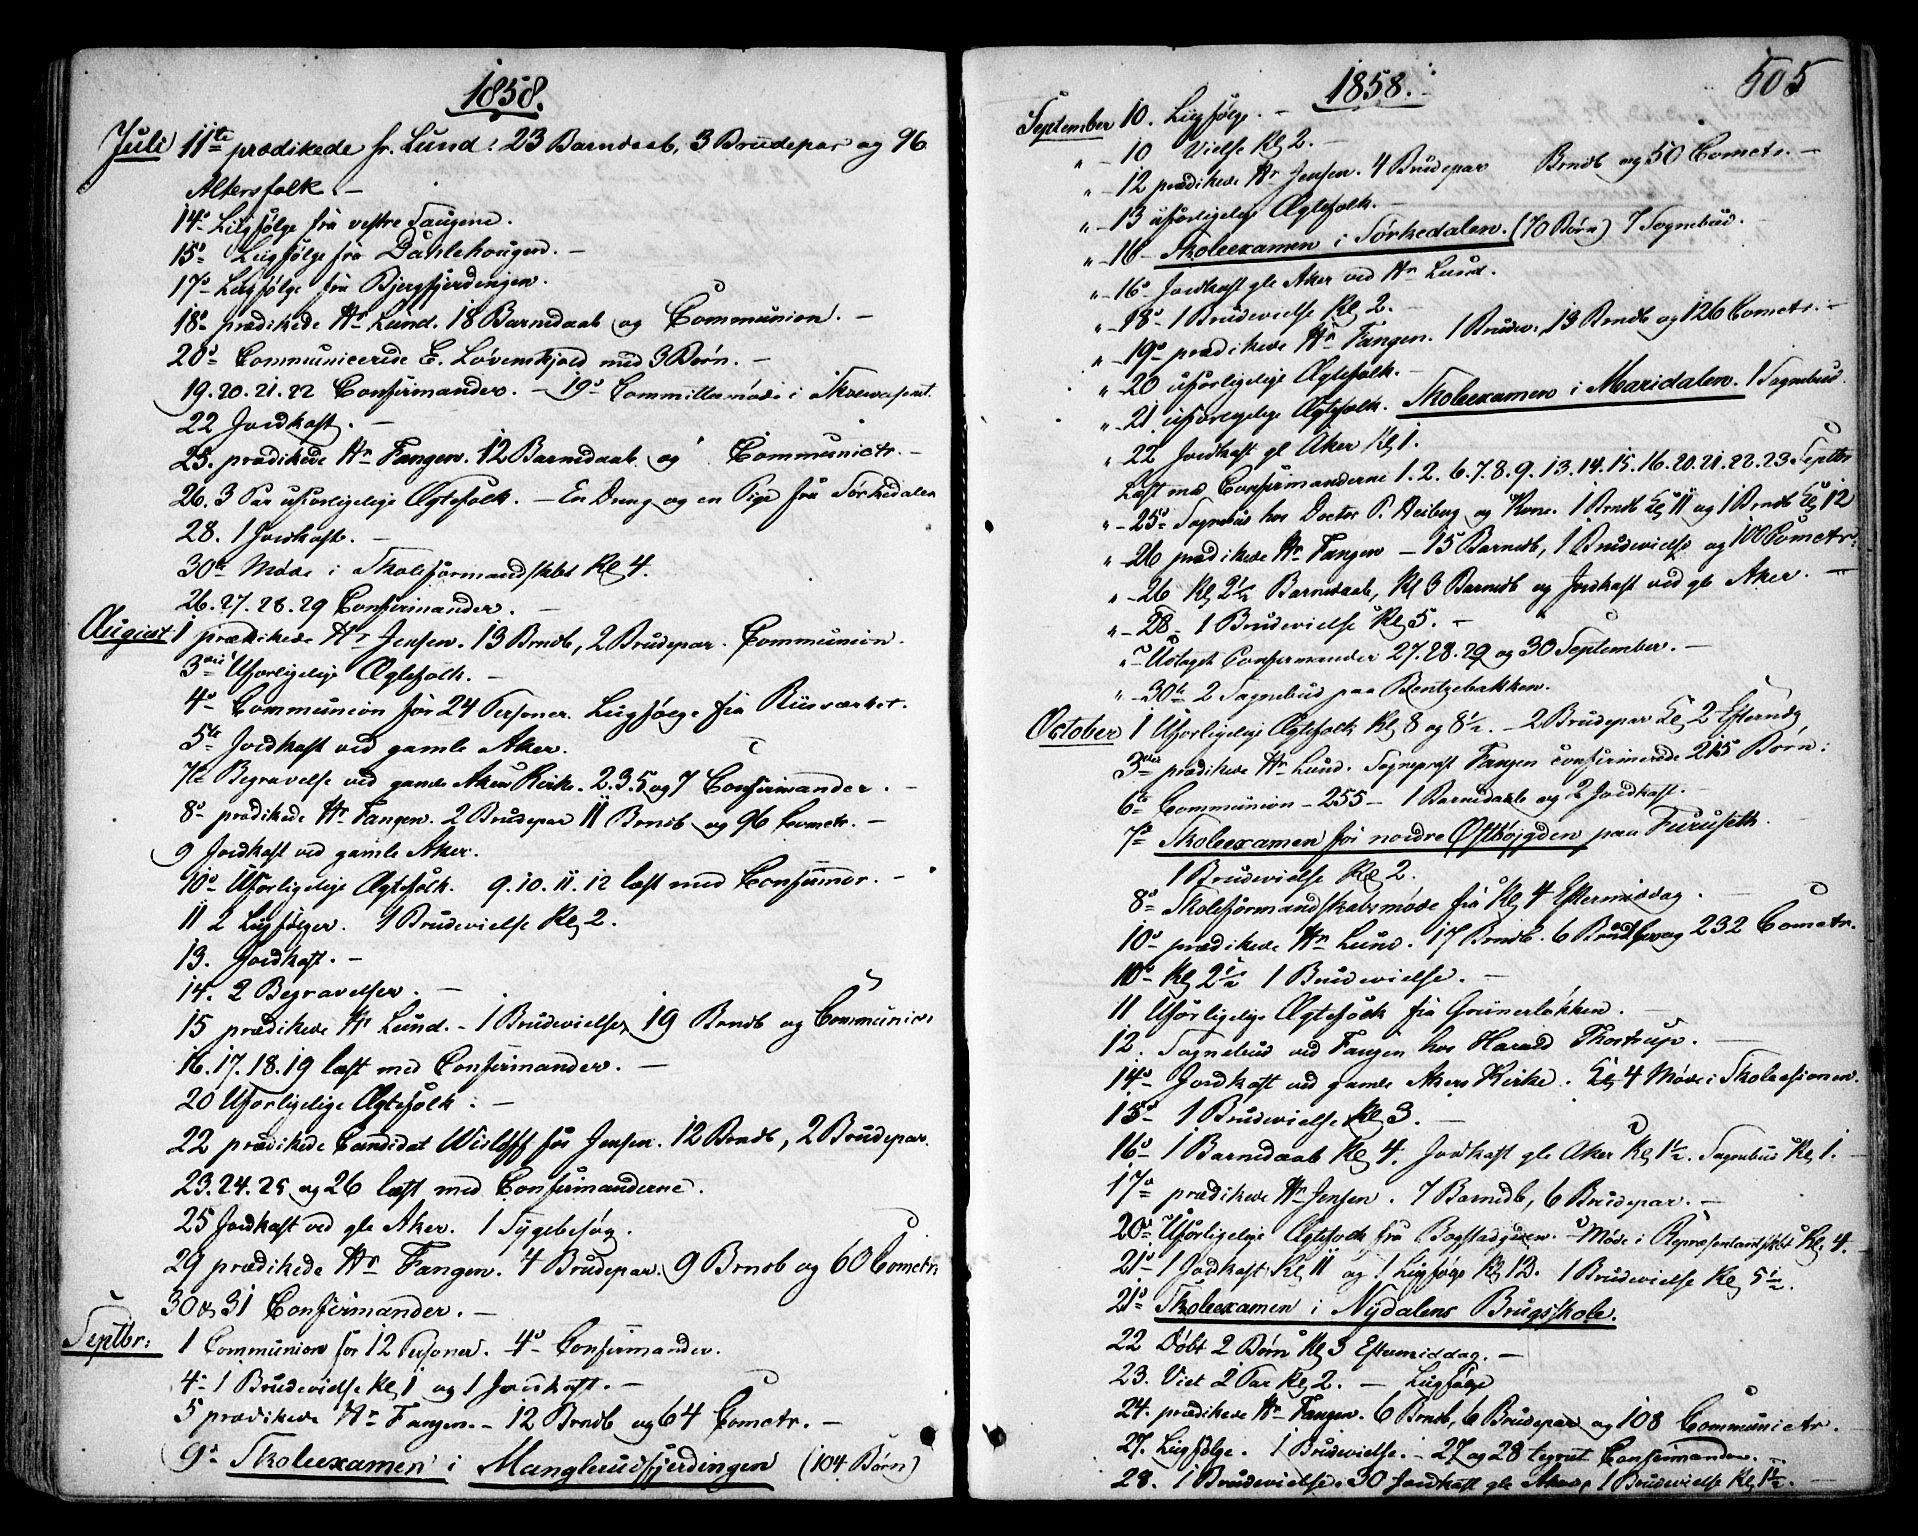 1858.
Juli 11te prædikede hr. Lund. 23 Barndaab, 3 Brudepar og 96
Altersfolk. –
14d Liigfølge fra vestre Taugene.
15d Liigfølge fra Dahlehougen. –
17d Liigfølge fra Bjergfjerdingen.
18d prædikede Hr Lund. 18 Barnedaab og Communion. –
20d Communicerede E. Løvenskjold med 3 Børn. –
19. 20. 21. 22 Confirmander. – 19d Committemøde i
22 Jordkast. –
25. prædikede Hr Fangen. 12 Barnedaab og Communictr. –
26. 3 Par uforligelige Ægtefolk. – En Dreng og en Pige fra Sørkedalen
28. 1 Jordkast. –
30te Møde i Skoleformandskabet Kl 4.
26. 27. 28. 29 Confirmander. –
August 1 prædikede Hr Jensen. 13 Brndb, 2 Brudepar. Communion.
3die Uforligelige Ægtefolk. –
4d Communion for 24 Personer. Liigfølge fra Riisværket.
5te Jordkast ved gamle Aker.
7de Begravelse ved gamle Aker Kirke. 2. 3. 5 og 7 Confirmander. –
8d prædikede Hr Fangen. 2 Brudepar 11 Brndb og 96 Cometr. –
9 Jordkast ved gamle Aker.
10d Uforligelige Ægtefolk. 9. 10. 11. 12 læst med Confirmdr. –
11 2 Liigfølger. 1 Brudevielse Kl 2.
13. Jordkast. –
14. 2 Begravelser. –
15 prædikede Hr Lund. – 1 Brudevielse, 19 Brndb og Communion
16. 17. 18. 19 læst med Confirmander. –
20 Uforligelige Ægtefolk. –
22 prædikede Candidat Wisløff for Jensen. 12 Brndb, 2 Brudepar.
23. 24. 25 og 26 læst med Confirmanderne.
25 Jordkast ved gle Aker. 1 Sygebesøg.
29 prædikede Hr Fangen. 4 Brudepar. 9 Brndb og 60 Cometr.
30 & 31 Confirmander. –
Septbr: 1 Communion for 12 Personer. – 4d Confirmander.
4d 1 Brudevielse Kl 1 og 1 Jordkast. –
5 prædikede Hr Fangen. – 12 Brndb og 64 Cometr. –
9d Skoleexamen i Manglerudfjerdingen (104 Børn)
1858. 505
September 10. Liigfølge. –
" – 10 Vielse Kl 2. –
" – 12 prædikede Hr Jensen. 4 Brudepar Brndb og 50 Cometr. –
" – 13 uforligelige Ægtefolk. –
" – 16 – Skoleexamen i Sørkedalen. (70 Børn) 7 Sognebud. –
" – 16d Jordkast gle Aker ved Hr Lund.
" – 18d 1 Brudevielse Kl 2. –
" – 19d prædikede Hr Fangen. 1 Brudev., 13 Brndb og 126 Cometr. –
" – 20 uforligelige Ægtefolk. –
" – 21. uforligelige Ægtefolk. Skoleexamen i Maridalen. 1 Sognebud.
" 22 Jordkast gl Aker Kl 1.
Læst med Confirmanderne 1. 2. 6. 7. 8. 9. 13. 14. 15. 16. 20. 21. 22. 23. Septbr
" – 25d Sognebud hos Doctor P. Heiberg og Kone. 1 Brndb Kl 11 og 1 Brndb Kl 12
" – 26 prædikede Hr Fangen – 15 Barndb, 1 Brudevielse og 100 Cometr.
" – 26 Kl 2½ Barnedaab, Kl 3 Barndb og Jordkast ved gl Aker. –
" – 28 – 1 Brudevielse Kl 5. –
" – Udtaget Confirmander 27. 28. 29 og 30 September. –
" – 30te 2 Sognebud paa Bentsebakken.
October 1 Uforligelige Ægtefolk Kl 8 og 8½ – 2 Brudepar Kl 2 Eftermdg
3die prædikede Hr Lund. Sogneprst Fangen confirmerede 215 Børn:
6te Communion – 255 – 1 Barnedaab og 2 Jordkast. –
7d Skoleexamen for nordre Østbøjgden paa Furuseth.
1 Brudevielse Kl 2.
8d Skoleformandskabsmøde fra Kl 4 Eftermiddag.
10d prædikede Hr Lund. 17 Brndb. 6 Brudepar og 232 Cometr.
10d Kl 2½ 1 Brudevielse. –
11 Uforligelige Ægtefolk fra Grünerløkken. –
12. Sognebud ved Fangen hos Harald Thostrup. –
14d Jordkast ved gamle Akers Kirke. Kl 4 Møde i
15d 1 Brudevielse Kl 3. –
16d 1 Barnedaab Kl 4. Jordkast gle Aker Kl 1½. Sognebud Kl 1. –
17d prædikede Hr Jensen. 7 Barnedb, 6 Brudepar. –
20d Uforligelige Ægtefolk fra – Møde i Repræsentantskbt Kl 4.
21d 1 Jordkast Kl 11 og 1 Liigfølge Kl 12. 1 Brudevielse Kl 5½.
21d Skoleexamen i Nydalens Brugsskole.
22 Døbt 2 Børn Kl 3 Eftermiddag. –
23. Viet 2 Par Kl 2. – Liigfølge
24. prædikede Hr Fangen. 6 Brndb, 6 Brudepar og 108 Communictr.
27. Liigfølge. 1 Brudevielse. – 27 og 28 Confirmander. –
28. 1 Brudevielse. 30 Jordkast gle Aker, 1 Brudevielse Kl 1½. –